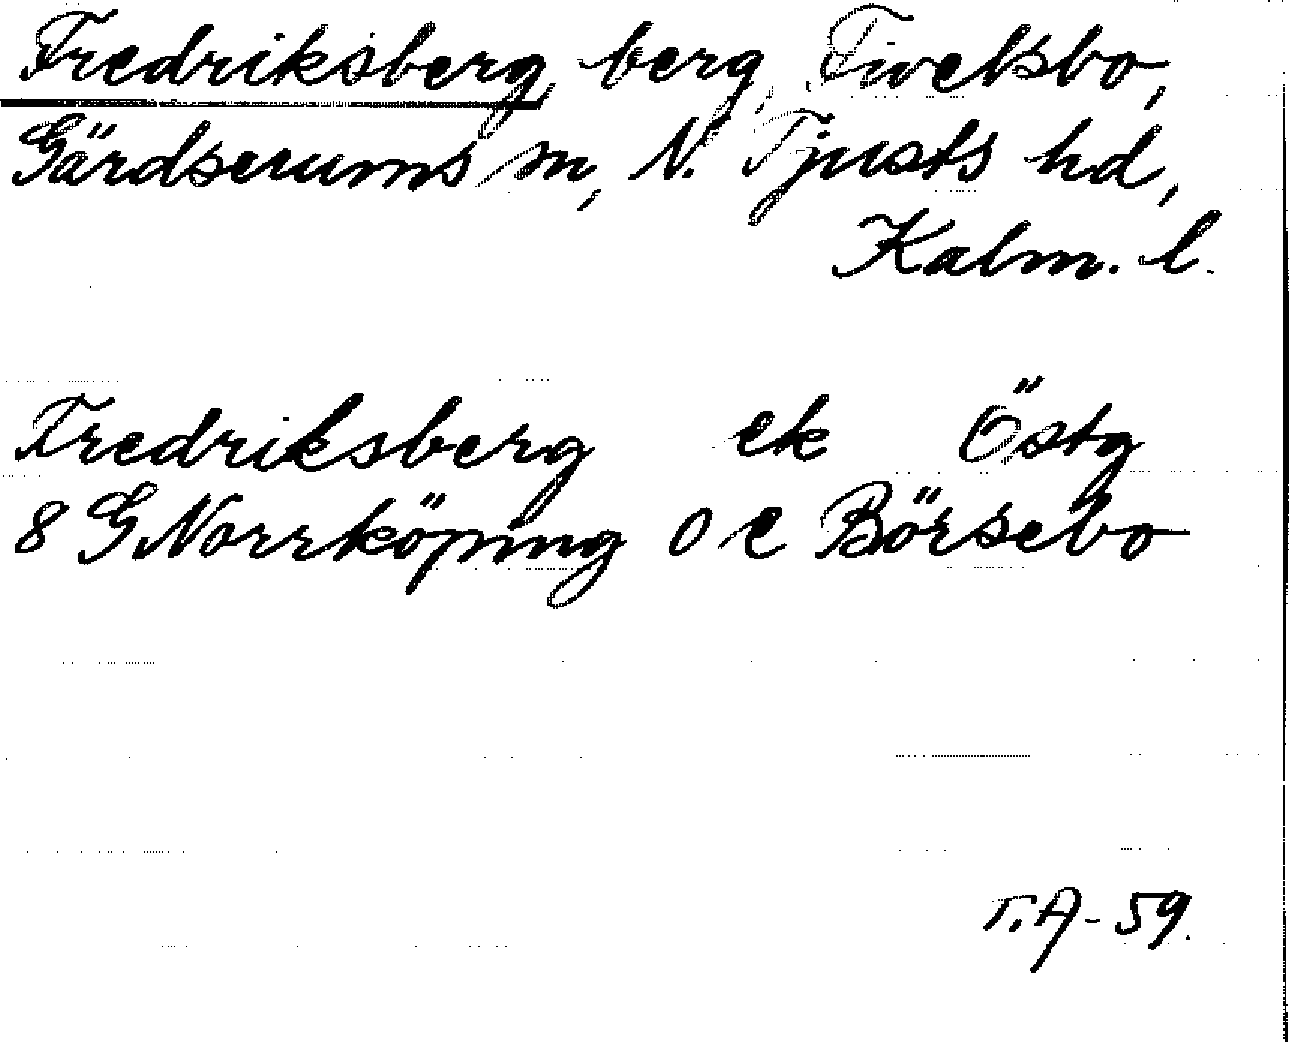 Fredriksberg, berg, Tivelsbo,
Gärdserums sn, N. Tjusts hd,
Kalm. l.
Fredriksberg ek Östg
8 G Norrköping o e Börsebo
T.A-59.